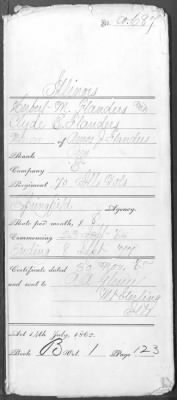 No. 60.687
Illinois
Herbert M. Flanders and
Clyde E. Flanders
of Amos J Flanders
Rank
Company E
Regiment 70 Ills Vols
Springfield Agency.
Rate per month, $8
Commencing 23 Sept
Ending 8 Sept
Certificate dated 30 Nov.
and sent to
Mt Sterling
Ills
Act 14th July, 1862.
Book B Vol. 1 Page 123